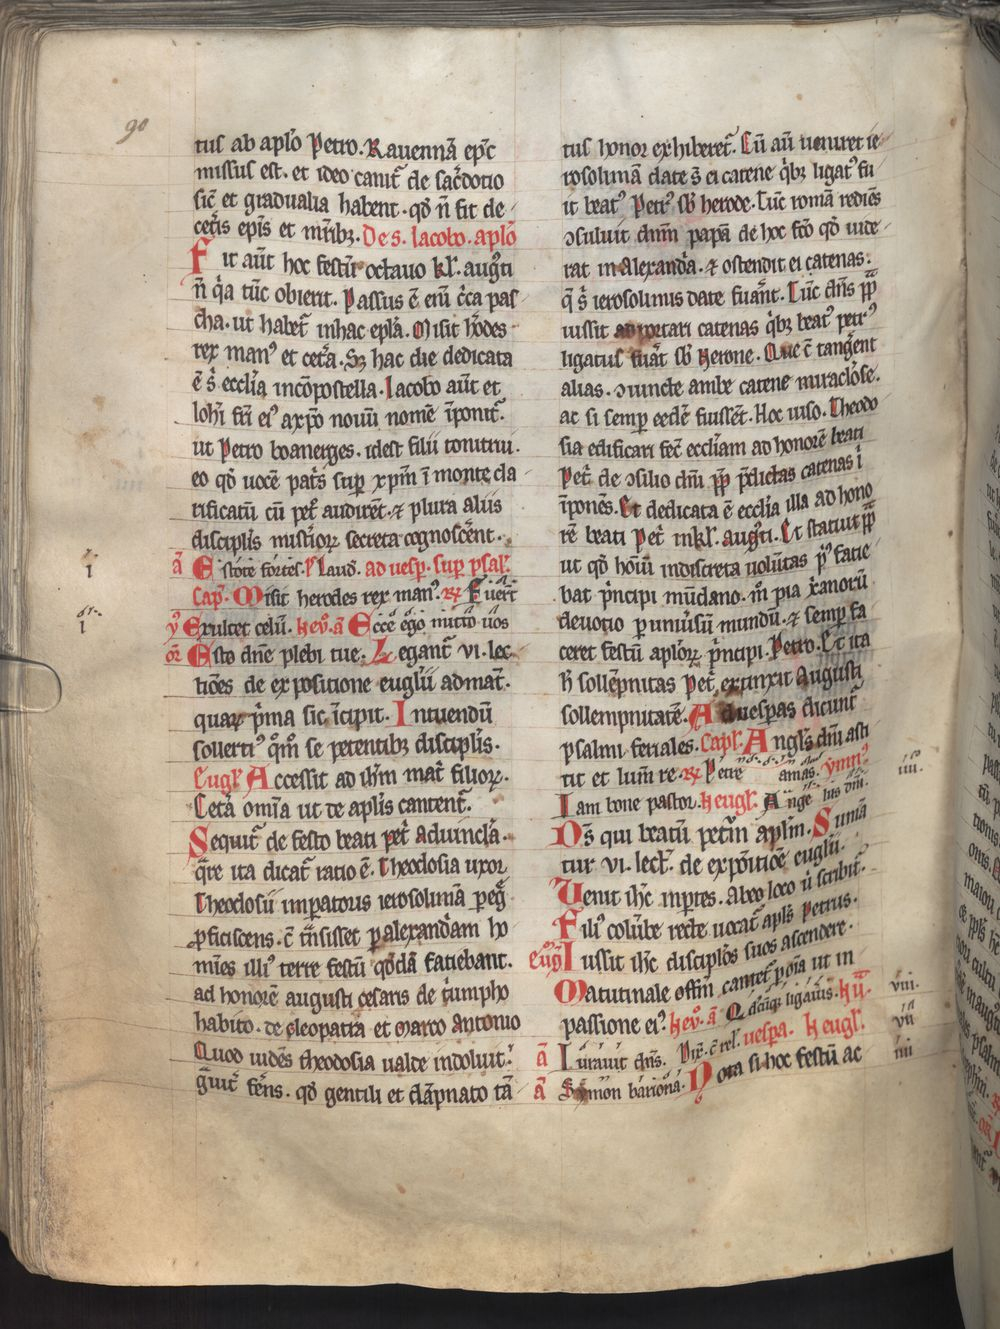 90
tus ab apl'o Petro. Rauennā ep̄c
missus est. et ideo canit̄ de sac̄dotio
sic̄ et gradualia habent. qd̄ n̄ fit de
cet̄is ep̄is et mr̄ibꝫ. De s. Iacobo. aplo
Fit aūt hoc festū octauo kl'. augꝰti
n̄ q̄a tūc obierit. Passus ē eni c̄ca pas
cha. ut habet̄ in hac epl'a. Misit h'odes
rex manꝰ et cet̄a. Sꝫ hac die dedicata
ē s̄ ecclīa in cōpostella. Iacobo aūt et
Ioh'i fr̄i eiꝰ a xp̄o nouū nomē īponit̄.
ut Petro boanerges. idest filii tonitrui.
eo qd̄ uocē pat̄s sup̄ xp̄m ī monte cla
rificatū cū pet̄ audirēt. ⁊ plura aliis
discipl'is mist̄ioꝝ secreta cognoscēnt.
a̅ Estote fortes. Ps Laud'. ad uesp̄. sup̄ psal'.
i
Cap'. Misit herodes rex manꝰ. R℣ Fuer̄t
i
℣ Exultet celū. In eu᷎. a̅ Ecce ego mitto uos
or̄ Esto dn̄e plebi tue. Legant̄ vi. lec
tiōes de expositione euglīi ad mat̄.
quaꝝ p̄ma sic īcipit. Intuendū
sollertiꝰ qm̄ se petentibꝫ discipl'is.
Eugl' Accessit ad ih'm mat̄ filioꝝ.
Cet̄a om̄ia ut de apl'is cantent̄.
Sequit̄ de festo beati pet̄ ad uincl'a.
q̄re ita dicat̄ ratio ē. Theodosia uxor
Theodosii imp̄atoris ierosolimā peḡ
ꝓficiscens. c̄ t̄nsisset p̄ alexand̄am ho
mīes illiꝰ terre festū qd̄dā faciebant.
ad honorē augusti cesaris de t̄umpho
habito. de cleopatra et Marco Antonio
Quod uidēs theodosia ualde indoluit.
ḡuit̄ fer̄ns. qd̄ gentili et dāpnato tā
tus honor exhiberet̄. Cū aū ueniret ie
rosolimā date s̄ ei catene q̄bꝫ ligatꝰ fu
it beatꝰ Petrꝰ sb̄ herode. Tūc romā rediēs
ↄsuluit dnm̄ papā de hoc fc̄o qd̄ uide
rat in Alexand̄a. ⁊ ostendit ei catenas.
q̄ s̄ ierosolimis date fuānt. Tūc dn̄s pp̄
iussit apportari catenas q̄bꝫ beatꝰ petrꝰ
ligatus fuāt sb̄ Nerone. Que c̄ tanḡent
alias. ↄiuncte ambe catene miracl'ose.
ac si semp̄ eedē fuissēt. Hoc uiso. Theodo
sia edificari fec̄ eccl'iam ad honorē beati
Pet̄ de ↄsilio dn̄i pp̄ p̄dictas catenas ī
īponēs. Et dedicata ē eccl'ia illa ad hono
rē beati Pet̄ in kl'. augꝰti. Et statuit pp̄
ut qd̄ hoīm indiscreta uolūtas pꝰ facie
bat p̄ncipi mūdano. m̊ pia x̄anorū
deuotio p̄ uniūsū mundū. ⁊ semp̄ fa
ceret festū apl'oꝝ p̄ncipi. Petro. Et ita
h̄ sollēpnitas Pet̄ extinxit Augusti
sollempnitatē. Ad uesp̄as dicunt̄
psalmi feriales. Capl'. Angl's dn̄i asti
tit et lum̄ re R℣ Petre amas. ymnꝰ
iiii.
Iam bone pastor. In eugl'. Ange lus dn̄i.
Ds̄ qui beatū petrū apl'm. Sumā
tur vi. lect'. de expōitiōe euglīi.
Venit ih'c in partes. Ab eo loco ū scribit̄.
Filiꝰ colūbe recte uocat̄ apl's Petrus.
eugl' Iussit ih'c discipl'os suos ascendere.
Matutinale offm̄ cantet̄ p̄ oīa ut in
passione eiꝰ. In eu᷎. a̅ Qd̄cūqꝫ ligaūis. In ii.
viii.
a̅ Iurauit dn̄s. Dix̄. c̄ rel'. uesp̄a. In eugl'.
vii
a̅ Symon bariona. Nota si hoc festū ac
iiii